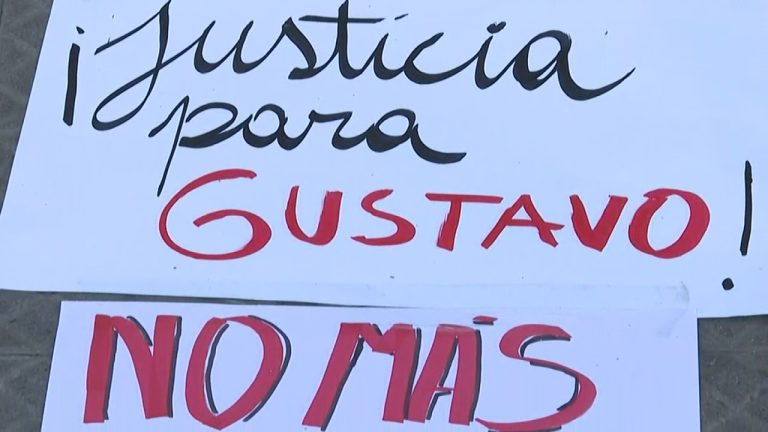 ¡Justicia
para
GUSTAVO!
NO MÁS